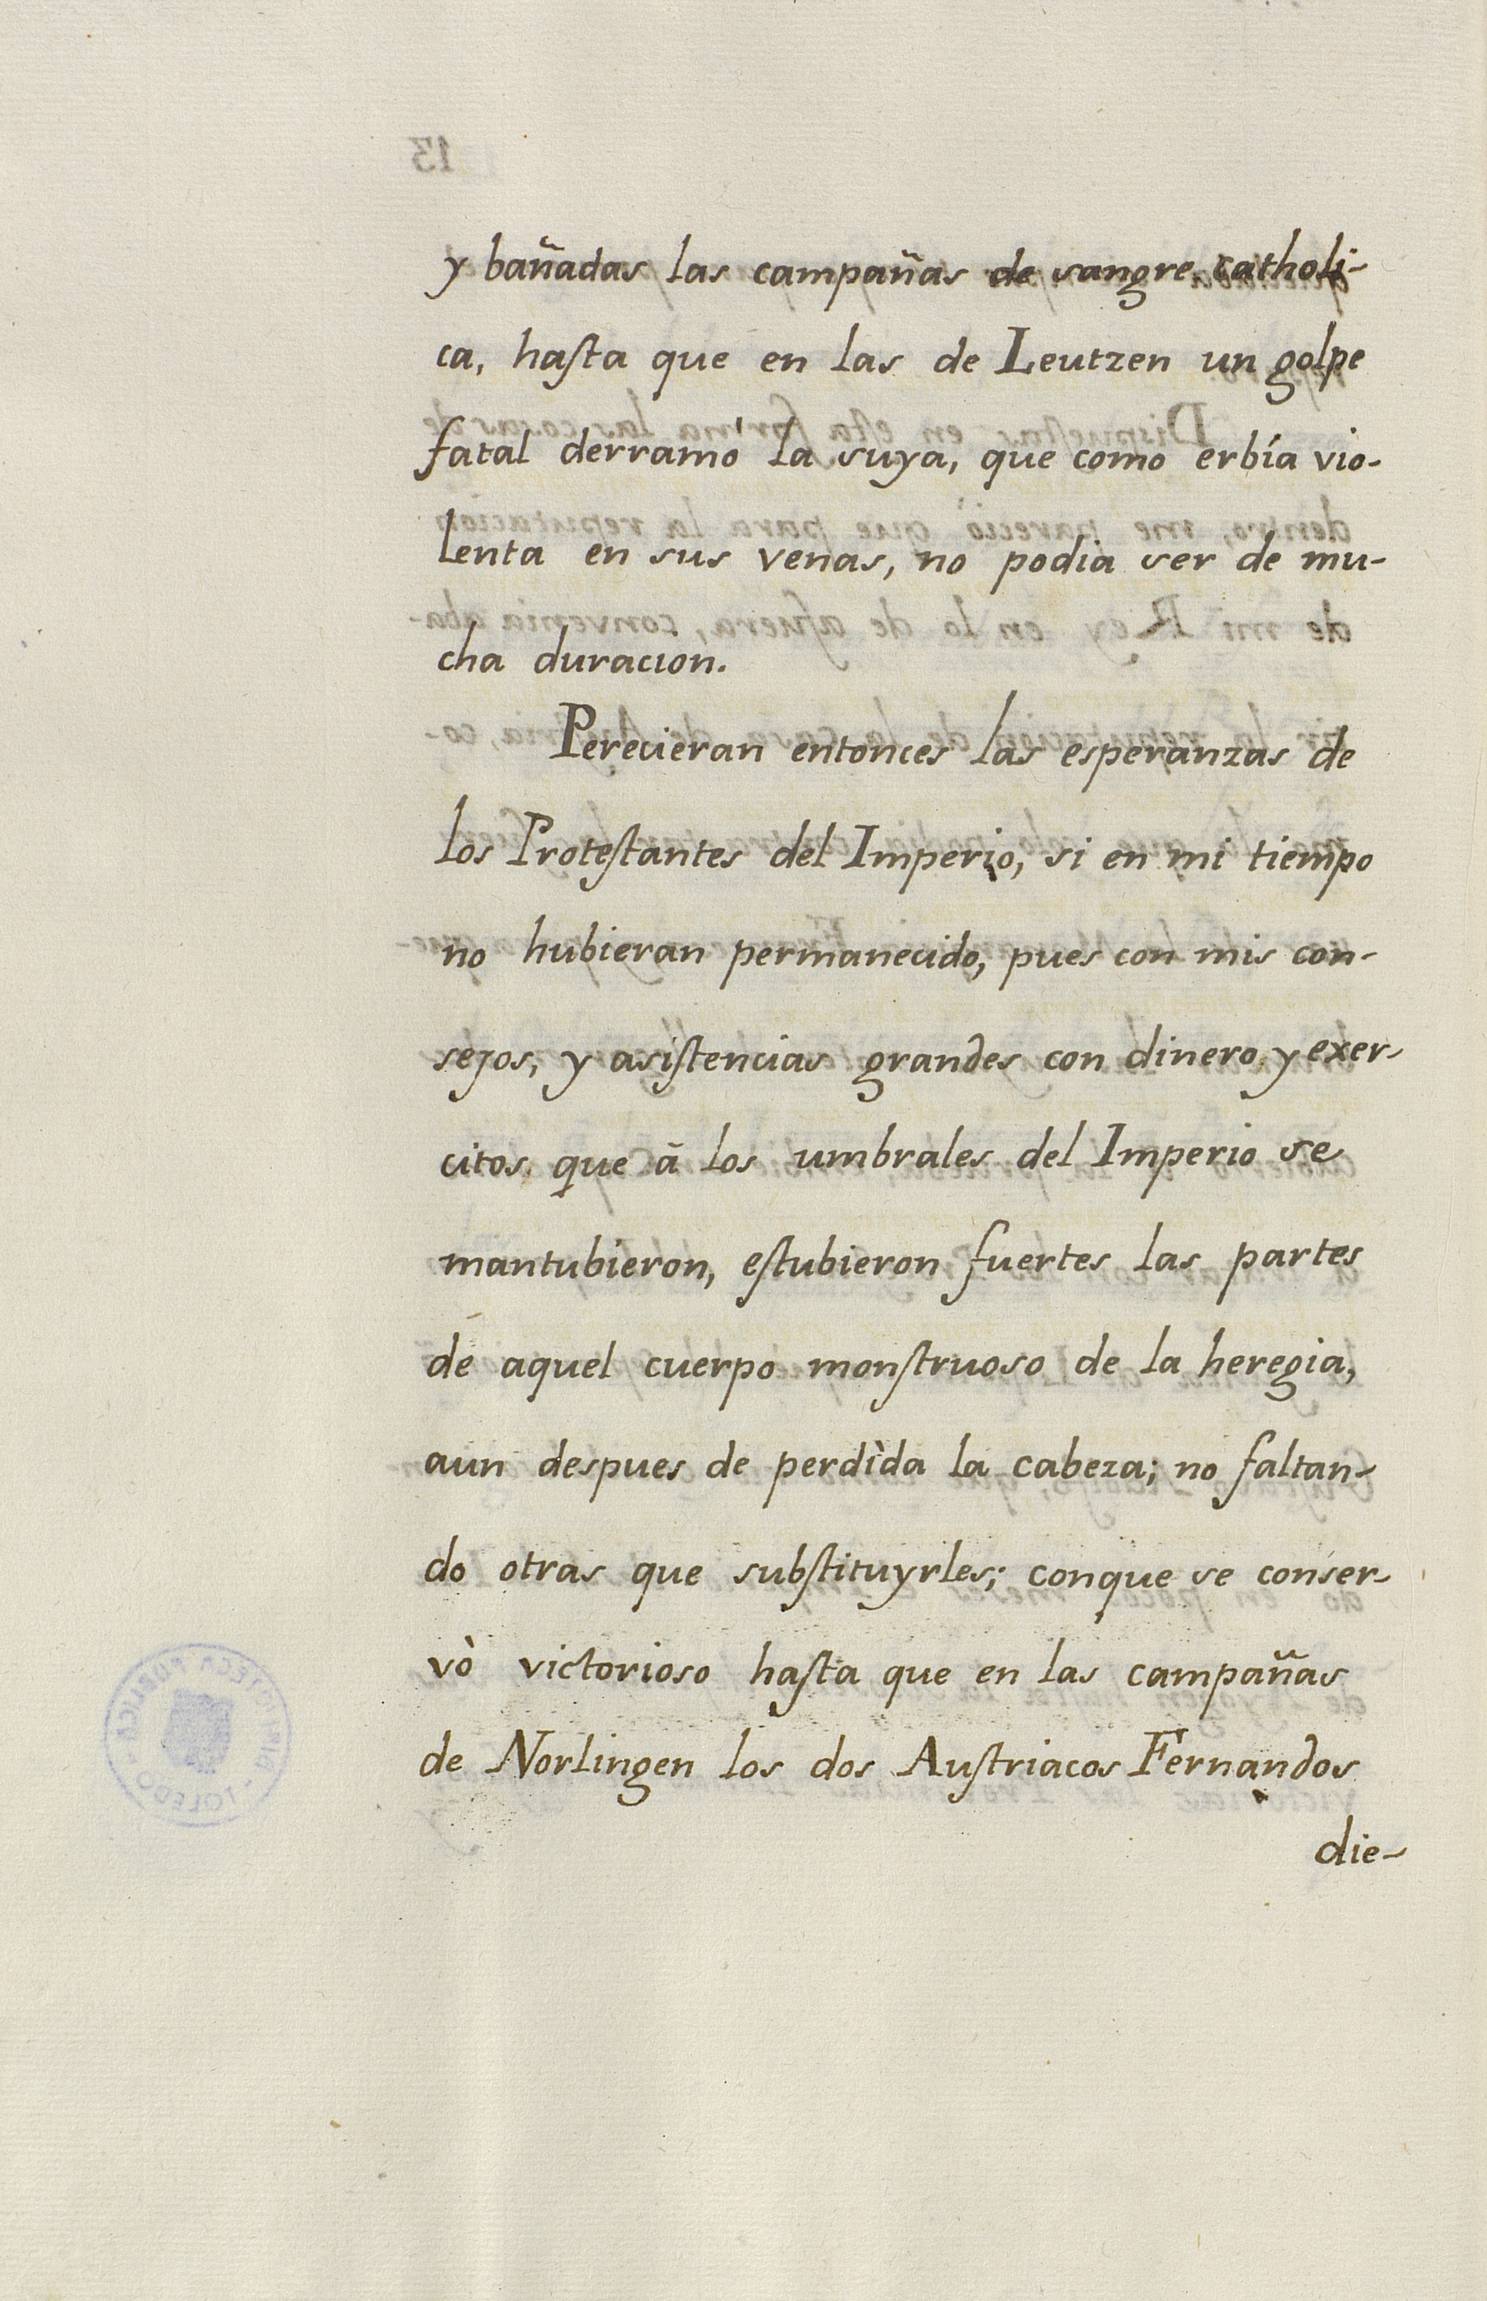 y bañadas las campañas de sangre catholi-
ca, hasta que en las de Leutzen un golpe
fatal derramò la suya, que como erbía vio-
lenta en sus venas, no podia ser de mu-
cha duracion.
Perecieran entonces las esperanzas de
los Protestantes del Imperio, si en mi tiempo
no hubieran permanecido, pues con mis con-
sejos, y asistencias grandes con dinero, y exer-
citos, que à los umbrales del Imperio se
mantubieron, estubieron fuertes las partes
de aquel cuerpo monstruoso de la heregia,
aun despues de perdìda la cabeza; no faltan-
do otras que substituyrles; conque se conser-
vò victorioso hasta que en las campañas
de Norlingen los dos Austriacos Fernandos
die-